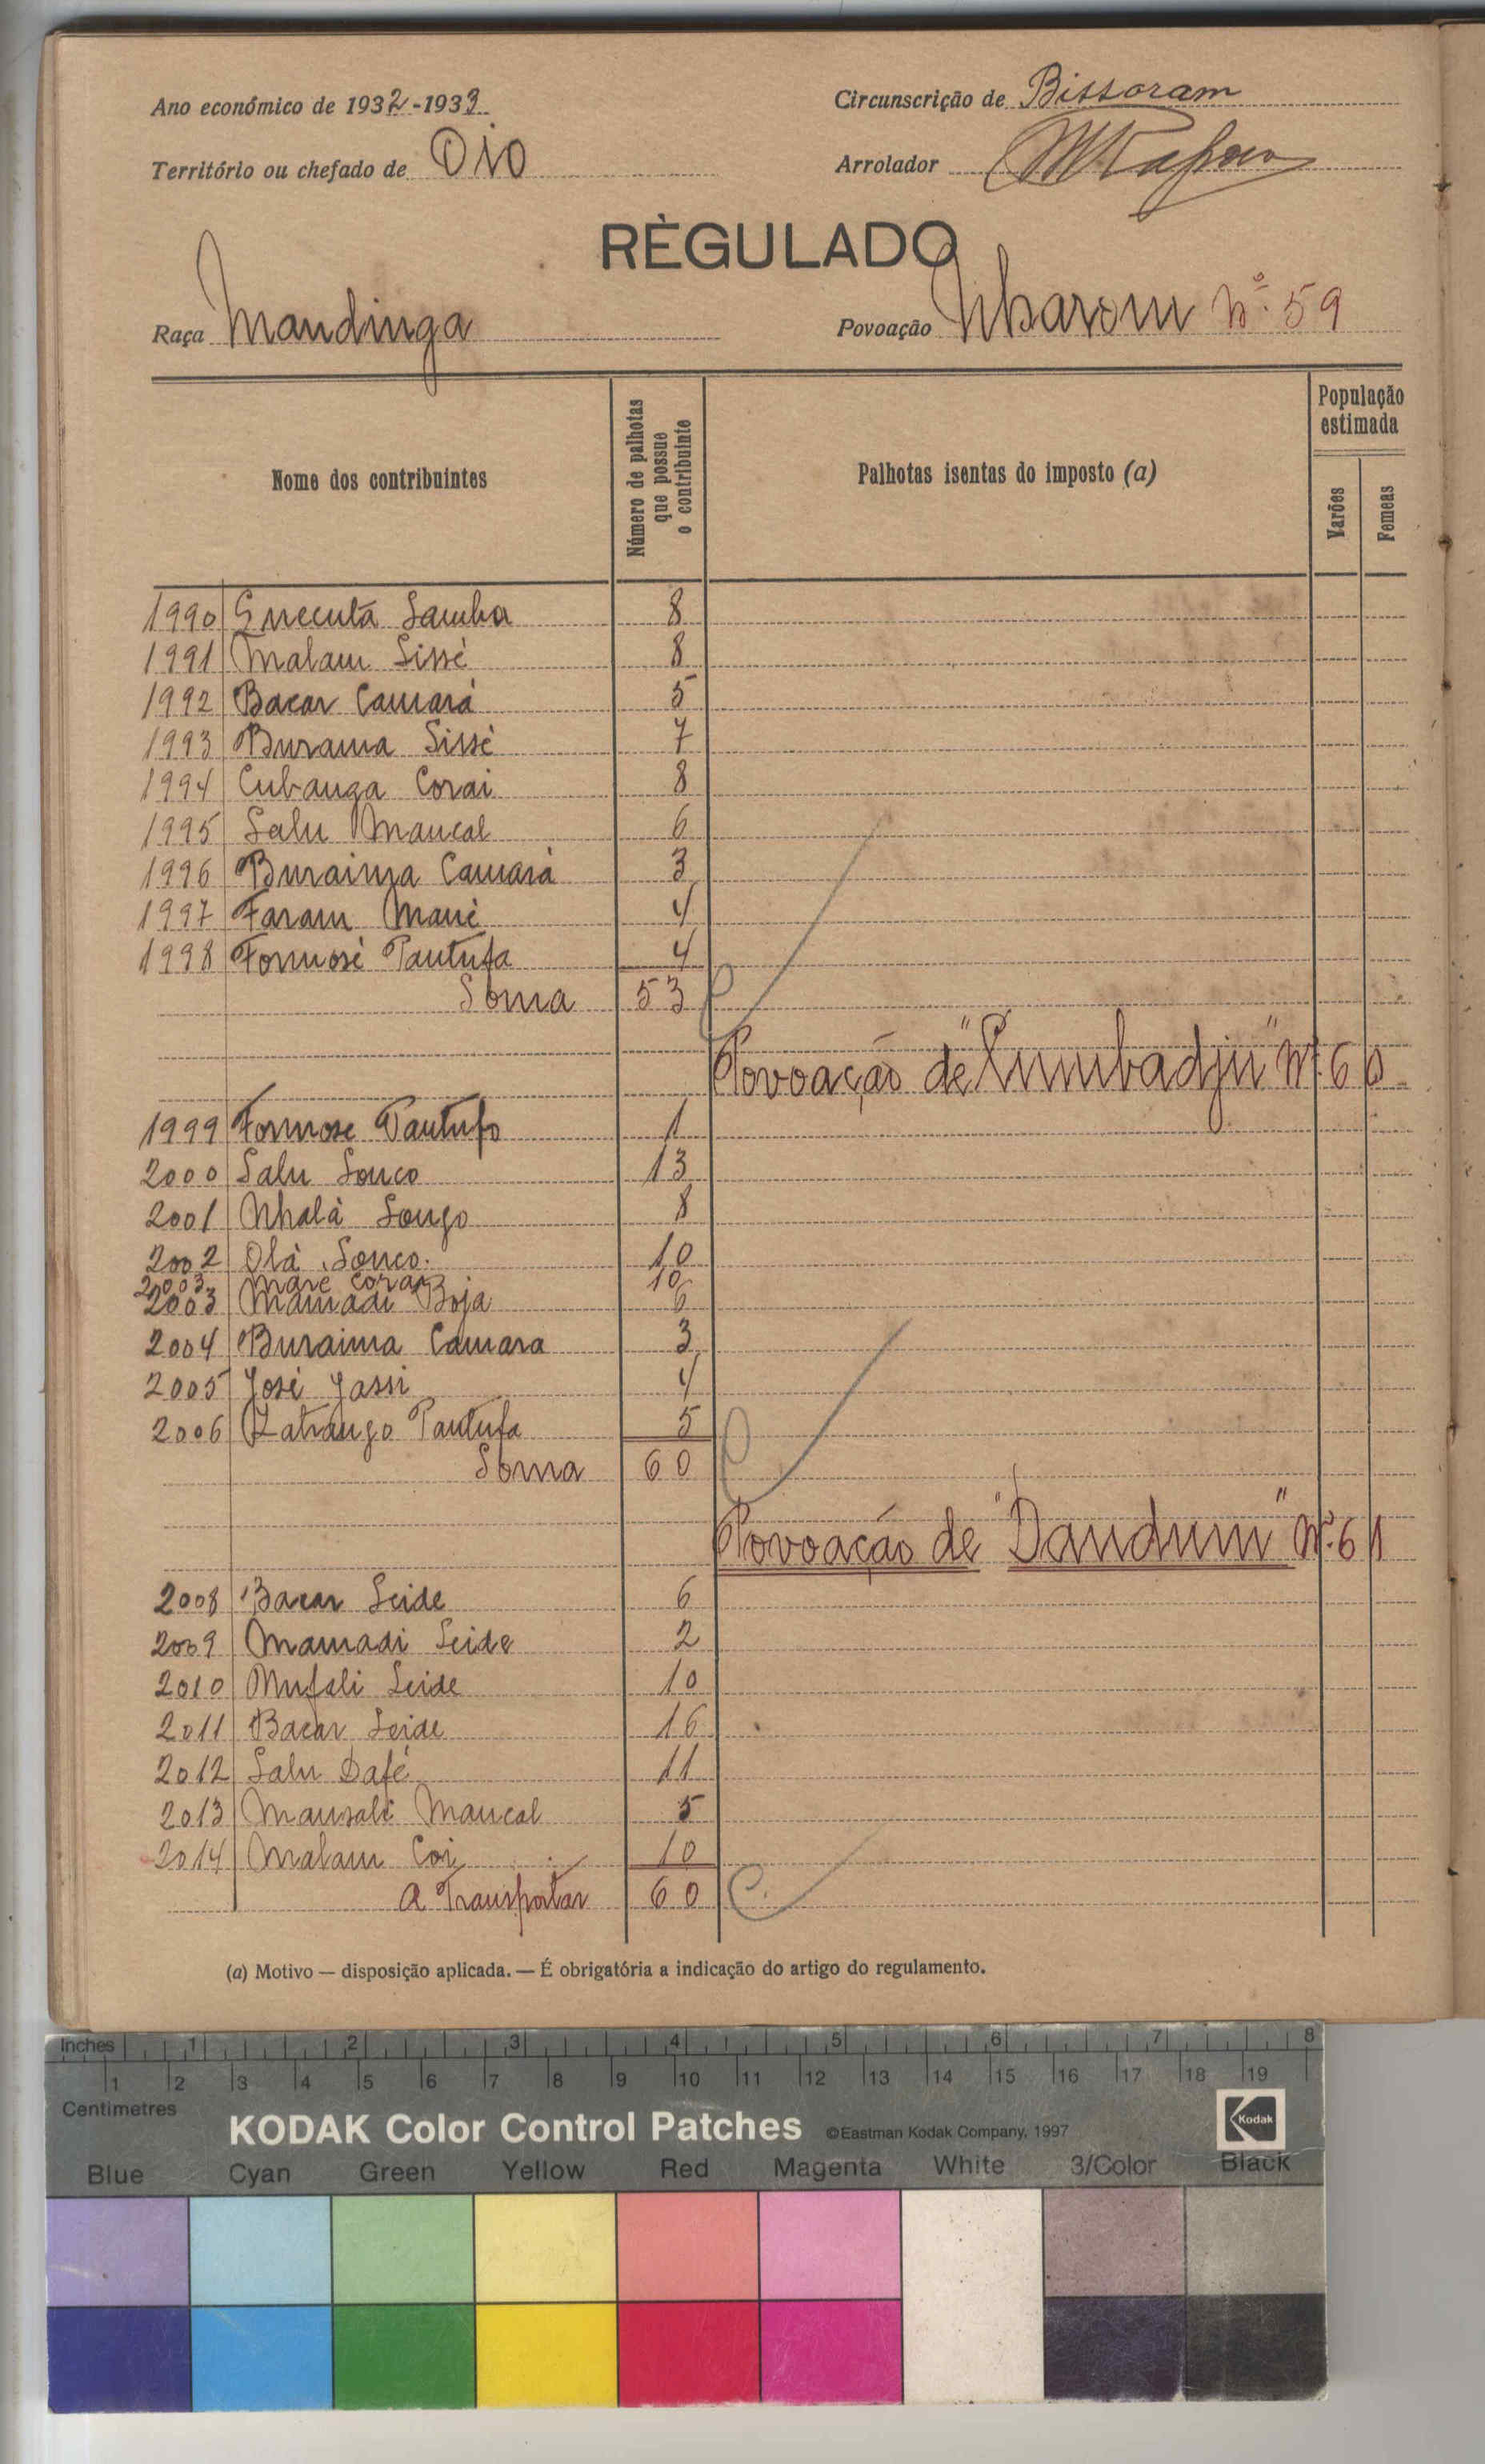 Ano económico de 1932-1933
Circunscrição de Bissoram
Território ou chefado de Oio
Arrolador
RÈGULADO
Raça Mandinga
Povoação Nharom Nº 59
Nome dos contribuintes
Número de palhotas que possue o contribuinte
Palhotas isentas do imposto (a)
População estimada
Varões
Femeas
1990 Samba 8
1991 Malam Sissé 8
1992 Bacar Camará 5
1993 Burama Sissé 7
1994 Cubanga Corai 8
1995 Salu Mancal 6
1996 Buraima Camará 3
1997 Faram Mané 4
1998 Formosé Pantufa 4
Soma 53
Povoação de Nº 60
1999 Formose Pantufo 1
2000 Salu Sonco 13
2001 Nhalá Songo 8
2002 Olá Sonco. 10
2003 Mare Corai 10
2003 Mamadi Boja 6
2004 Buraima Camara 3
2005 José Jassi 4
2006 Pantufa 5
Soma 60
Povoação de "Dandum" Nº 61
2008 Bacar Seide 6
2009 Mamadi Seide 2
2010 Mufali Seide 10
2011 Bacar Seide 16
2012 Salu Dafé 11
2013 Mansali Mancal 5
2014 Malam Coi 10
A Transportar 60
(a) Motivo — disposição aplicada. — É obrigatória a indicação do artigo do regulamento.
Inches 1 2 3 4 5 6 7 8
1 2 3 4 5 6 7 8 9 10 11 12 13 14 15 16 17 18 19
Centimetres
KODAK Color Control Patches ©Eastman Kodak Company, 1997 Kodak
Blue Cyan Green Yellow Red Magenta White 3/Color Black